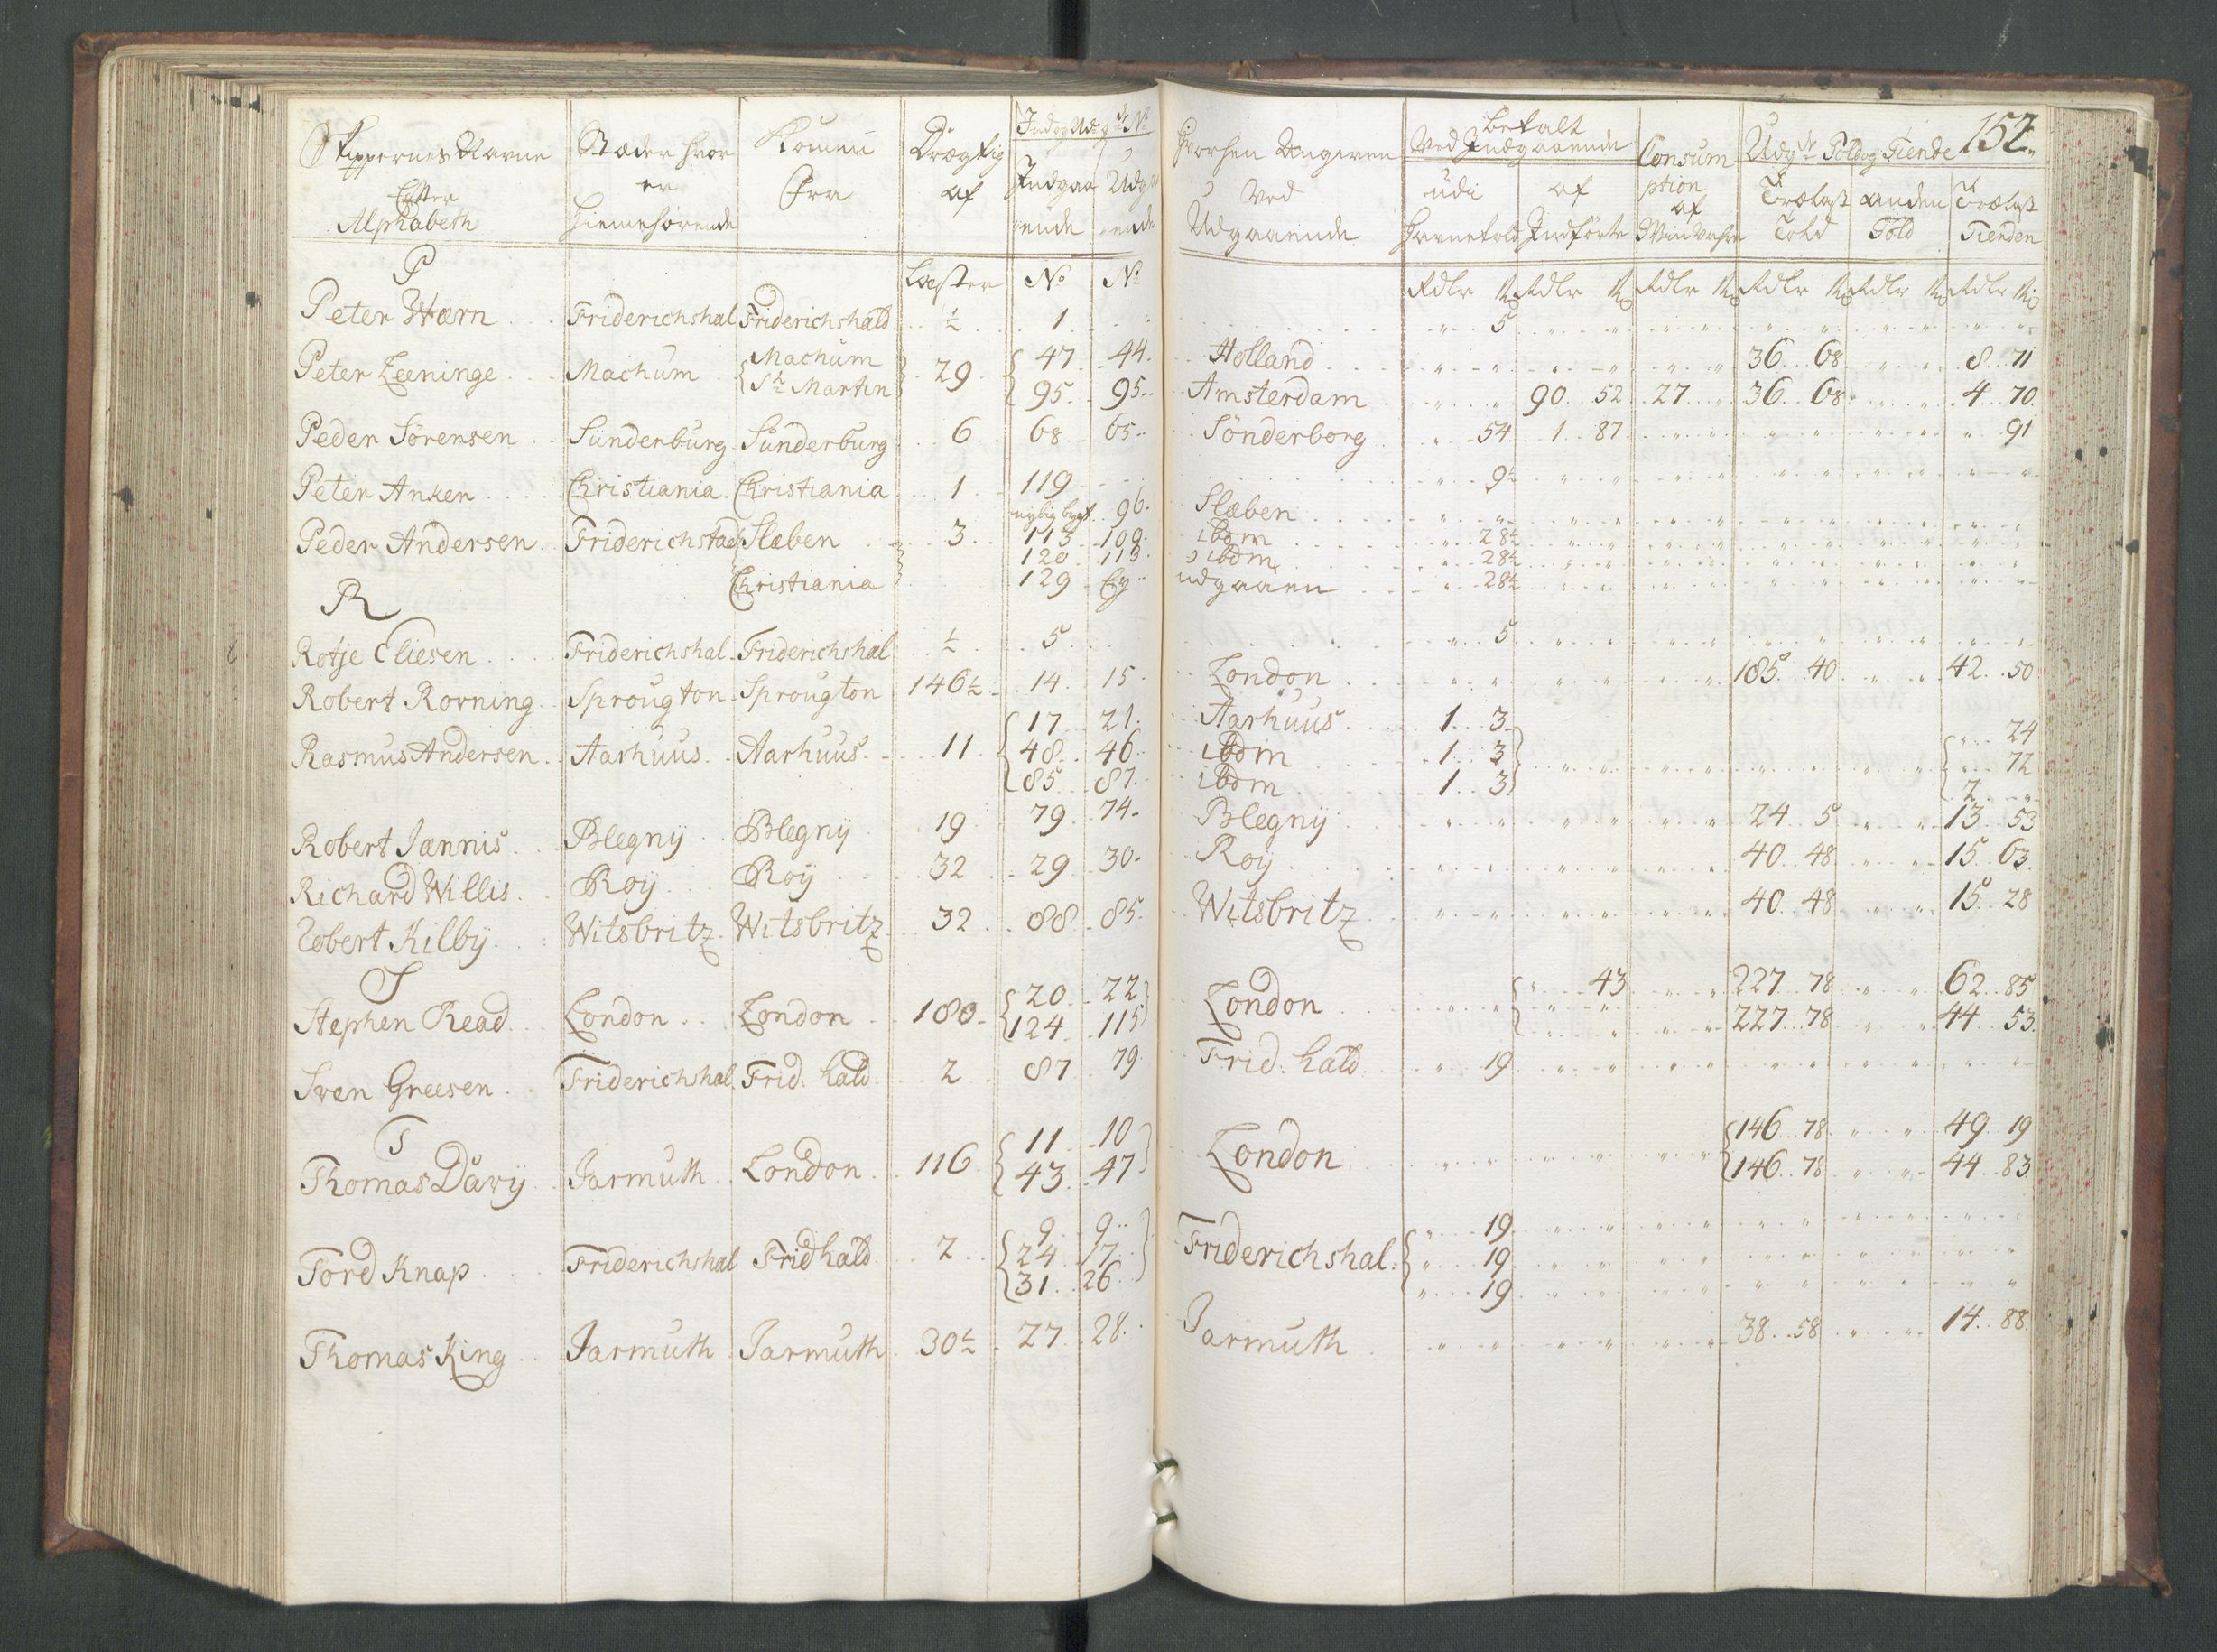 Skippernes Navne Stæder hvor Kommen Drægtig Ind og Udg
Efter er Fra af Indgaa Udga
Alphabeth Hiemehørende ende ende
P Læster No No
Peter Wærn Friderichshal Friderichshald ½ 1
Peter Zeeninge Machum Machum 29 47 44
St Martin 95 95
Peder Sørensen Sünderburg Sünderburg 6 68 65
Peter Anker Christiania Christiania 1 119
nylig bygt 96
Peder Andersen Friderichstad Slæben 3 113 109
120 113
Christiania 129 Ey
R
Rotje Eliesen Friderichshal Friderichshal ½ 5
Robert Rovning Sprougton Sprougton 146½ 14 15
17 21
Rasmus Andersen Aarhuus Aarhuus 11 48 46
85 87
Robert Jannis Blegnÿ Blegnÿ 19 79 74
Richard Willis Roÿ Roÿ 32 29 30
Robert Kilbÿ Witsbritz Witsbritz 32 88 85
S
Stephen Read London London 180 20 22
124 115
Sven Greesen Friderichshal Frid: hald 2 87 79
T
Thomas Davÿ Jarmuth London 116 11 10
43 47
9 9
Tord Knap Friderichshal Fridhald 2 24 17
31 26
Thomas King Jarmuth Jarmuth 30½ 27 28
152
Hvorhen Angiven Betalt Ved Indgaaende Consum Udg Told og Tiende
Ved udi af ption Trælast anden Trælast
Udgaaende Havnetold Indførte af Told Told Tienden
Rdlr ß Rdlr ß Rdlr ß Rdlr ß Rdlr ß Rdlr ß
5
Holland 36 68 8 71
Amsterdam 90 52 27 36 68 4 70
Sönderborg 54 1 87 91
9½
Slæben
ibdm 28½
ibdm 28½
udgaaen 28½
5
London 185 40 42 50
Aarhuus 1 3 24
ibdm 1 3 72
ibdm 1 3 2
Blegnÿ 24 5 13 53
Roÿ 40 48 15 63
Witsbritz 40 48 15 28
London 43 227 78 62 85
227 78 44 53
Frid: hald 19
London 146 78 49 19
146 78 44 83
19
Friderichshal 19
19
Jarmuth 38 58 14 88